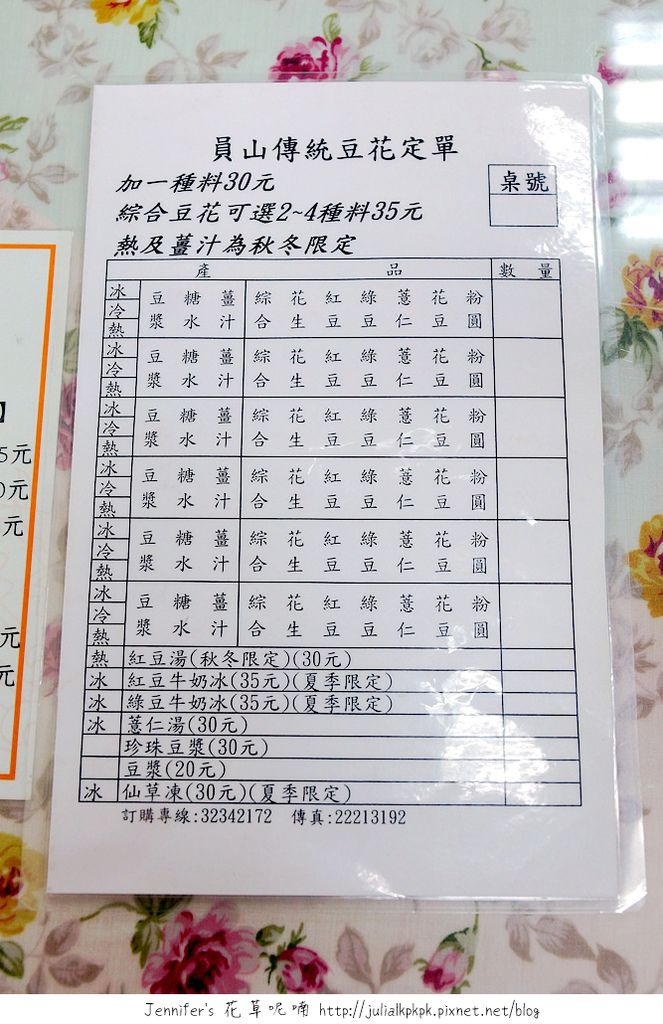 員山傳統豆花定單
加一種料30元
綜合豆花可選2~4種料35元
熱及薑汁為秋冬限定
桌號
產 品 數 量
冰 冷 熱 豆漿 糖水 薑汁 綜合 花生 紅豆 綠豆 薏仁 花豆 粉圓
冰 冷 熱 豆漿 糖水 薑汁 綜合 花生 紅豆 綠豆 薏仁 花豆 粉圓
冰 冷 熱 豆漿 糖水 薑汁 綜合 花生 紅豆 綠豆 薏仁 花豆 粉圓
冰 冷 熱 豆漿 糖水 薑汁 綜合 花生 紅豆 綠豆 薏仁 花豆 粉圓
冰 冷 熱 豆漿 糖水 薑汁 綜合 花生 紅豆 綠豆 薏仁 花豆 粉圓
冰 冷 熱 豆漿 糖水 薑汁 綜合 花生 紅豆 綠豆 薏仁 花豆 粉圓
熱 紅豆湯(秋冬限定)(30元)
冰 紅豆牛奶冰(35元)(夏季限定)
冰 綠豆牛奶冰(35元)(夏季限定)
冰 薏仁湯(30元)
珍珠豆漿(30元)
豆漿(20元)
冰 仙草凍(30元)(夏季限定)
訂購專線:32342172 傳真:22213192
】
5元
0元
元
元
元
Jennifer's 花草呢喃 http://julialkpkpk.pixnet.net/blog